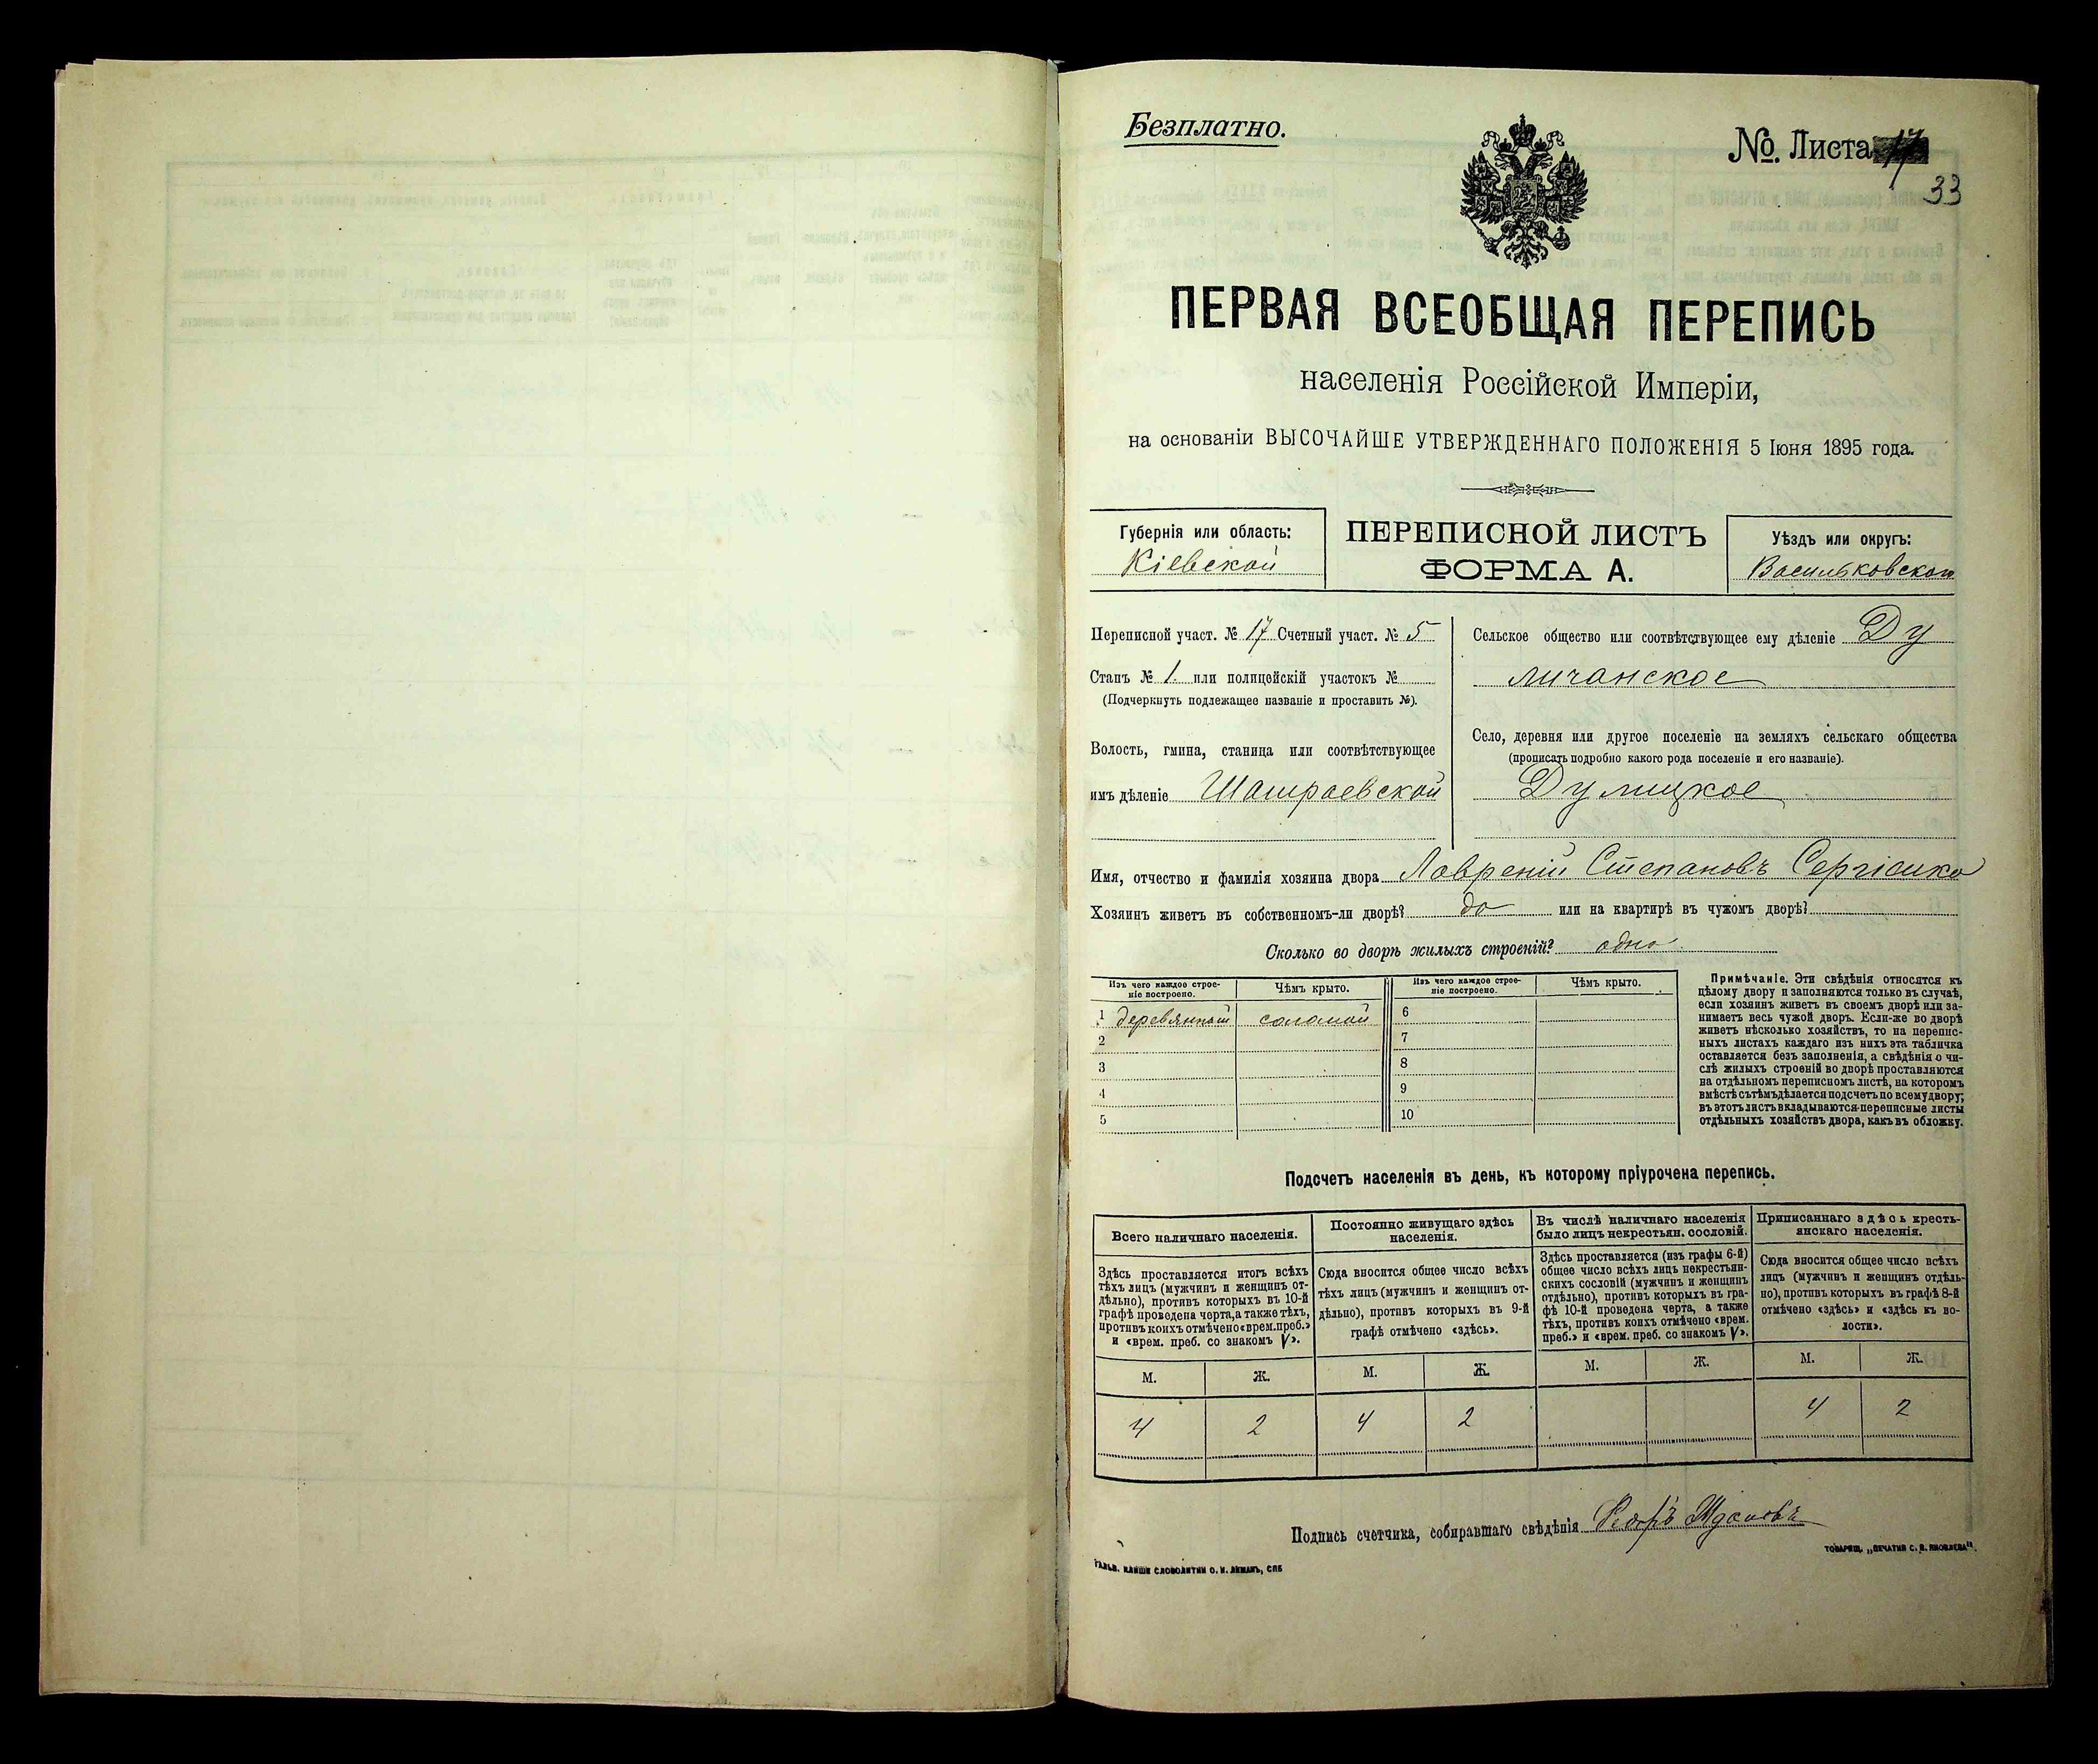 Безплатно.
№. Листа 17
33
ПЕРВАЯ ВСЕОБЩАЯ ПЕРЕПИСЬ
населенія Россійской Имперіи,
на основаніи ВЫСОЧАЙШЕ УТВЕРЖДЕННАГО ПОЛОЖЕНІЯ 5 Іюня 1895 года.
Губернія или область:
Кіевской
ПЕРЕПИСНОЙ ЛИСТЪ
ФОРМА А.
Уѣздъ или округъ:
Васильковскаго
Переписной участ. № 17 Счетный участ. № 5
Станъ № 1. или полицейскій участокъ №
(Подчеркнуть подлежащее названіе и проставить №).
Волость, гмина, станица или соотвѣтствующее
имъ дѣленіе Шамраевской
Сельское общество или соотвѣтствующее ему дѣленіе Ду
личанское
Село, деревня или другое поселеніе на земляхъ сельскаго общества
(прописать подробно какого рода поселеніе и его названіе).
Дулицкое
Имя, отчество и фамилія хозяина двора Лаврентій Степановъ Сергіенко
Хозяинъ живетъ въ собственномъ-ли дворѣ? да или на квартирѣ въ чужомъ дворѣ?
Сколько во дворѣ жилыхъ строеній? одно
Изъ чего каждое строе-
ніе построено.
Чѣмъ крыто.
Изъ чего каждое строе-
ніе построено.
Чѣмъ крыто.
1 деревянный соломой 6
2 7
3 8
4 9
5 10
Примѣчаніе. Эти свѣдѣнія относятся къ
цѣлому двору и заполняются только въ случаѣ,
если хозяинъ живетъ въ своемъ дворѣ или за-
нимаетъ весь чужой дворъ. Если-же во дворѣ
живетъ нѣсколько хозяйствъ, то на перепис-
ныхъ листахъ каждаго изъ нихъ эта табличка
оставляется безъ заполненія, а свѣдѣнія о чи-
слѣ жилыхъ строеній во дворѣ проставляются
на отдѣльномъ переписномъ листѣ, на которомъ
вмѣстѣ съ тѣмъ дѣлается подсчетъ по всему двору;
въ этотъ листъ вкладываются переписные листы
отдѣльныхъ хозяйствъ двора, какъ въ обложку.
Подсчетъ населенія въ день, къ которому пріурочена перепись.
Всего наличнаго населенія.
Постоянно живущаго здѣсь
населенія.
Въ числѣ наличнаго населенія
было лицъ некрестьян. сословій.
Приписаннаго здѣсь кресть-
янскаго населенія.
Здѣсь проставляется итогъ всѣхъ
тѣхъ лицъ (мужчинъ и женщинъ от-
дѣльно), противъ которыхъ въ 10-й
графѣ проведена черта, а также тѣхъ,
противъ коихъ отмѣчено «врем. преб.»
и «врем. преб. со знакомъ V».
Сюда вносится общее число всѣхъ
тѣхъ лицъ (мужчинъ и женщинъ от-
дѣльно), противъ которыхъ въ 9-й
графѣ отмѣчено «здѣсь».
Здѣсь проставляется (изъ графы 6-й)
общее число всѣхъ лицъ некрестьян-
скихъ сословій (мужчинъ и женщинъ
отдѣльно), противъ которыхъ въ гра-
фѣ 10-й проведена черта, а также
тѣхъ, противъ коихъ отмѣчено «врем.
преб.» и «врем. преб. со знакомъ V».
Сюда вносится общее число всѣхъ
лицъ (мужчинъ и женщинъ отдѣль-
но), противъ которыхъ въ графѣ 8-й
отмѣчено «здѣсь» и «здѣсь къ во-
лости».
М. Ж. М. Ж. М. Ж. М. Ж.
4 2 4 2 4 2
Подпись счетчика, собиравшаго свѣдѣнія
ГАЛЬВ. КЛИШЕ СЛОВОЛИТНИ О. И. ЛЕМАНЪ, СПБ
ТОВАРИЩ. „ПЕЧАТНЯ С. П. ЯКОВЛЕВА".